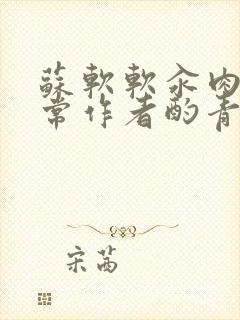 蘇軟軟汆肉
常作者酌青
宋茜